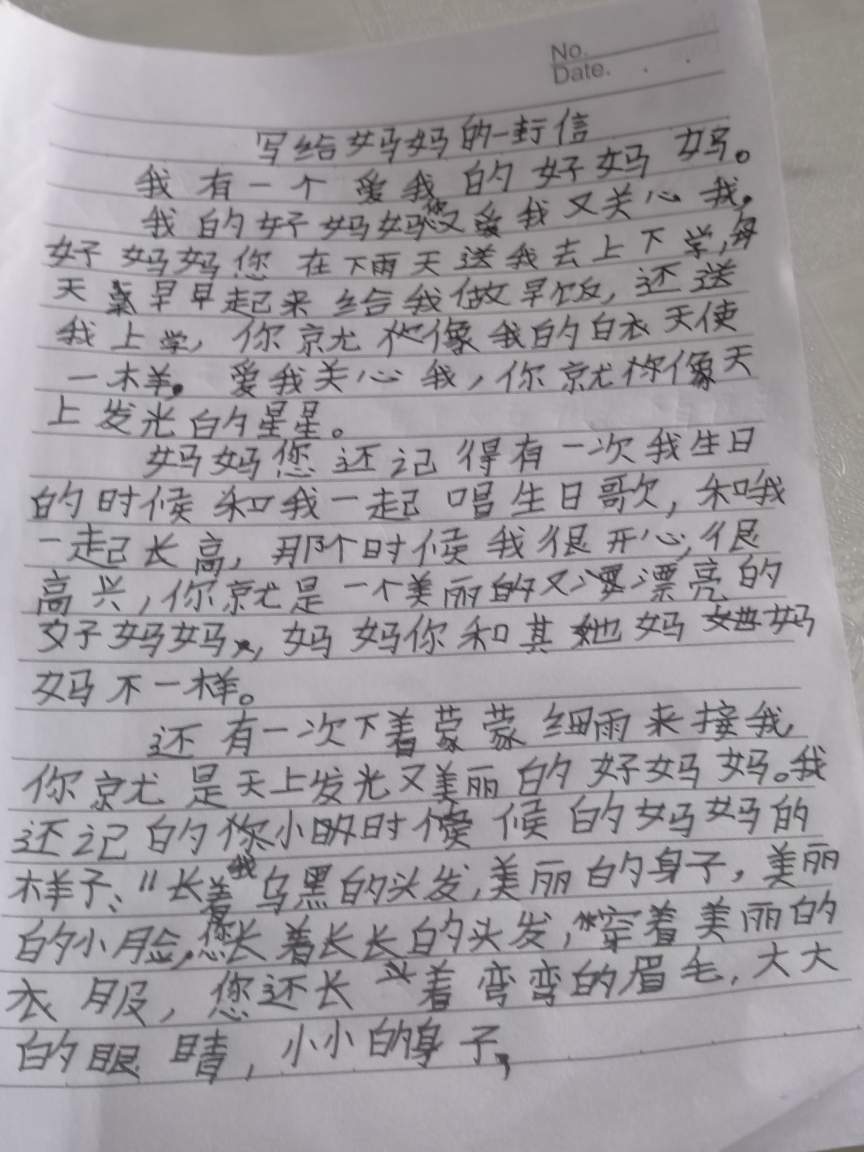 No.
Date.
写给妈妈的一封信
我有一个爱我的好妈妈。
我的好妈妈您又爱我又关心我。
好妈妈您在下雨天送我去上下学,每
天早早起来给我做早饭,还送
我上学,你就像我的白衣天使
一样。爱我关心我,你就像天
上发光的星星。
妈妈您还记得有一次我生日
的时候和我一起唱生日歌,和我
一起长高,那个时候我很开心,很
高兴,你就是一个美丽的又漂亮的
好妈妈,妈妈你和其她妈妈
妈不一样。
还有一次下着蒙蒙细雨来接我,
你就是天上发光又美丽的好妈妈。我
还记的你小时候的妈妈的
样子、"长着乌黑的头发,美丽的身子,美丽
的小脸,您长着长长的头发,穿着美丽的
衣服,您还长着弯弯的眉毛,大大
的眼睛,小小的身子,